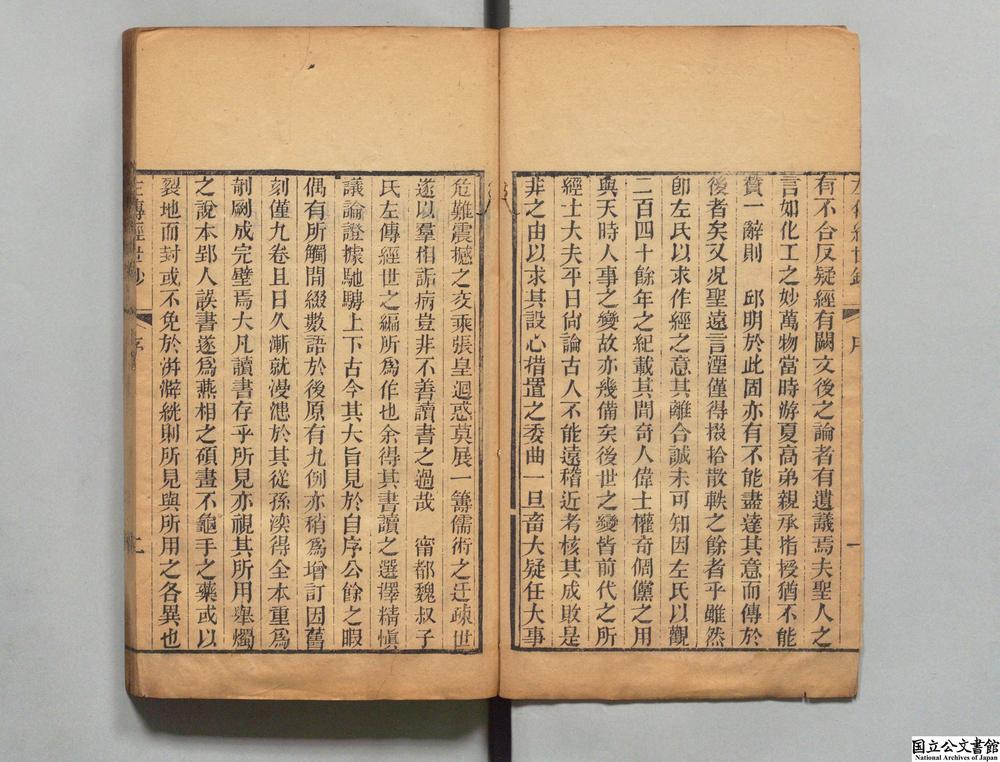 有不合反疑經有闕文後之論者有遺議焉夫聖人之
言如化工之妙萬物當時游夏高弟親承指授猶不能
賛一辭則　邱明於此固亦有不能盡達其意而傳於
後者矣又况聖遠言湮僅得掇拾散軼之餘者乎雖然
卽左氏以求作經之意其離合誠未可知因左氏以觀
二百四十餘年之紀載其間奇人偉士權奇倜儻之用
與天時人事之變故亦幾備矣後世之變皆前代之所
經士大夫平日尙論古人不能遠稽近考核其成敗是
非之由以求其設心措置之委曲一旦畜大疑任大事
危難震撼之交乘張皇迴惑莫展一籌儒術之迂疎世
遂以羣相詬病豈非不善讀書之過哉　甯都魏叔子
氏左傳經世之編所爲作也余得其書讀之選擇精愼
議論證據馳騁上下古今其大旨見於自序公餘之暇
偶有所觸閒綴數語於後原有九例亦稍爲增訂因舊
刻僅九卷且日久漸就漫漶於其從孫渙得全本重爲
剞劂成完璧焉大凡讀書存乎所見亦視其所用舉燭
之說本郢人誤書遂爲燕相之碩畫不龜手之藥或以
裂地而封或不免於洴澼絖則所見與所用之各異也
左傳經世鈔
序
二
左傳經世鈔
序
一
国立公文書館
National Archives of Japan